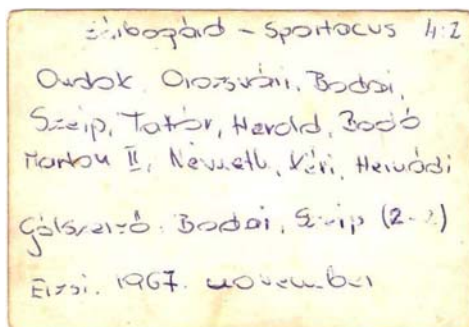 Sárbogárd – Spartacus 4:2
Orozvári, Bodai,
Szeip, Tatár, Herold, Bodó
Marton II, Németh, Véri,
Gólszerző: Bodai, Szeip (2-2)
1967. november